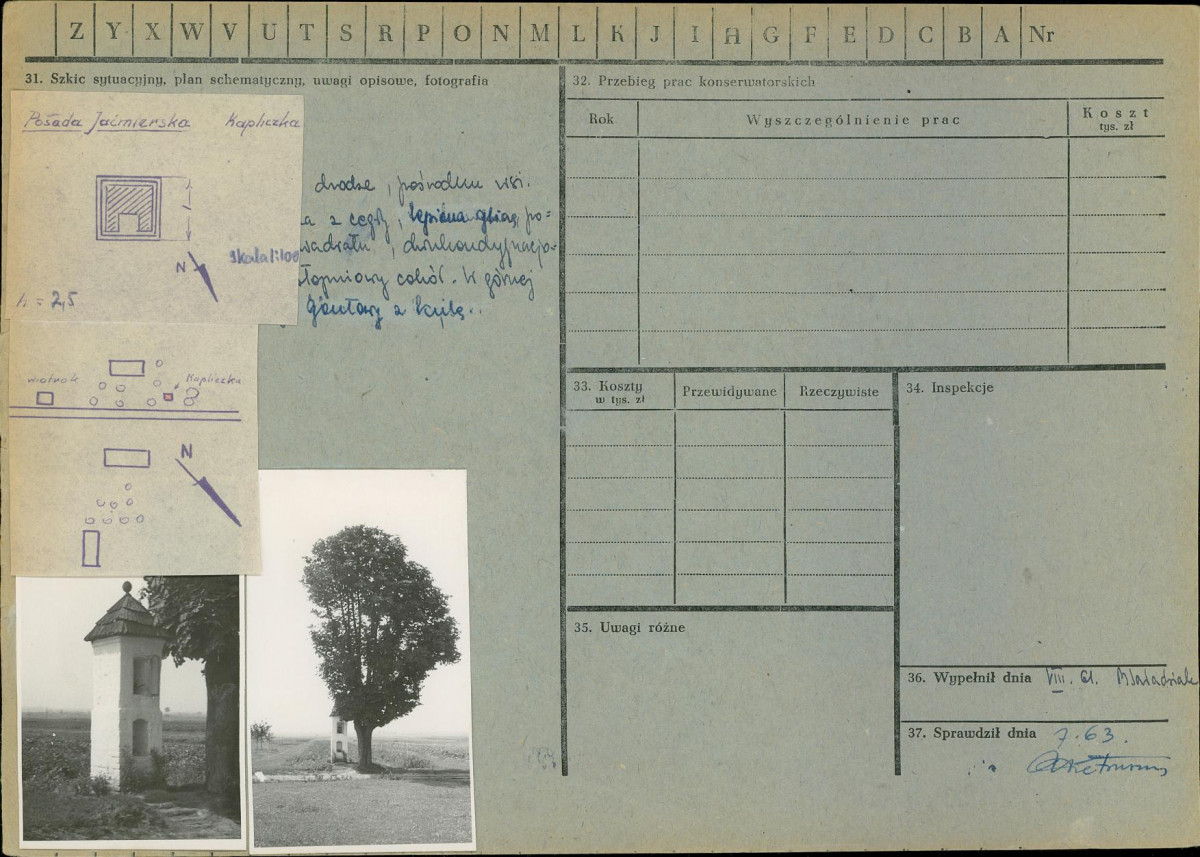 Z Y X W V U T S R P O N M L K J I H G F E D C B A Nr
31. Szkic sytuacyjny, plan schematyczny, uwagi opisowe, fotografia
Posada Jaćmierska Kapliczka
skala 1:100
N
h = 2,5
drodze, pośrodku wsi.
a z cegły, lepiona gliną, po=
wadratu, dwukondygnacjo-
topniowy cokół. W górnej
gontowy z kulą.
wiatrak Kapliczka
N
32. Przebieg prac konserwatorskich
Rok Wyszczególnienie prac Koszt
tys. zł
33. Koszty
w tys. zł
Przewidywane Rzeczywiste
34. Inspekcje
35. Uwagi różne
36. Wypełnił dnia VIII. 61.
37. Sprawdził dnia 7.63.